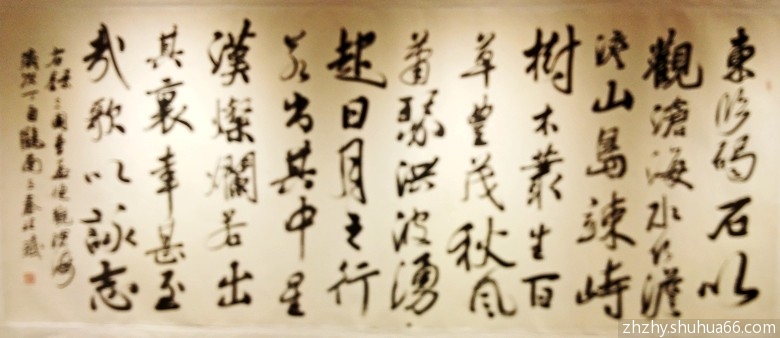 東臨碣石以
觀滄海水何澹
澹山島竦峙
樹木叢生百
草豐茂秋風
蕭瑟洪波湧
起日月之行
若出其中星
漢燦爛若出
其裏幸甚至
哉歌以詠志
右錄三國曹孟德觀滄海
歲次丁酉
zhzhy.shuhua66.com